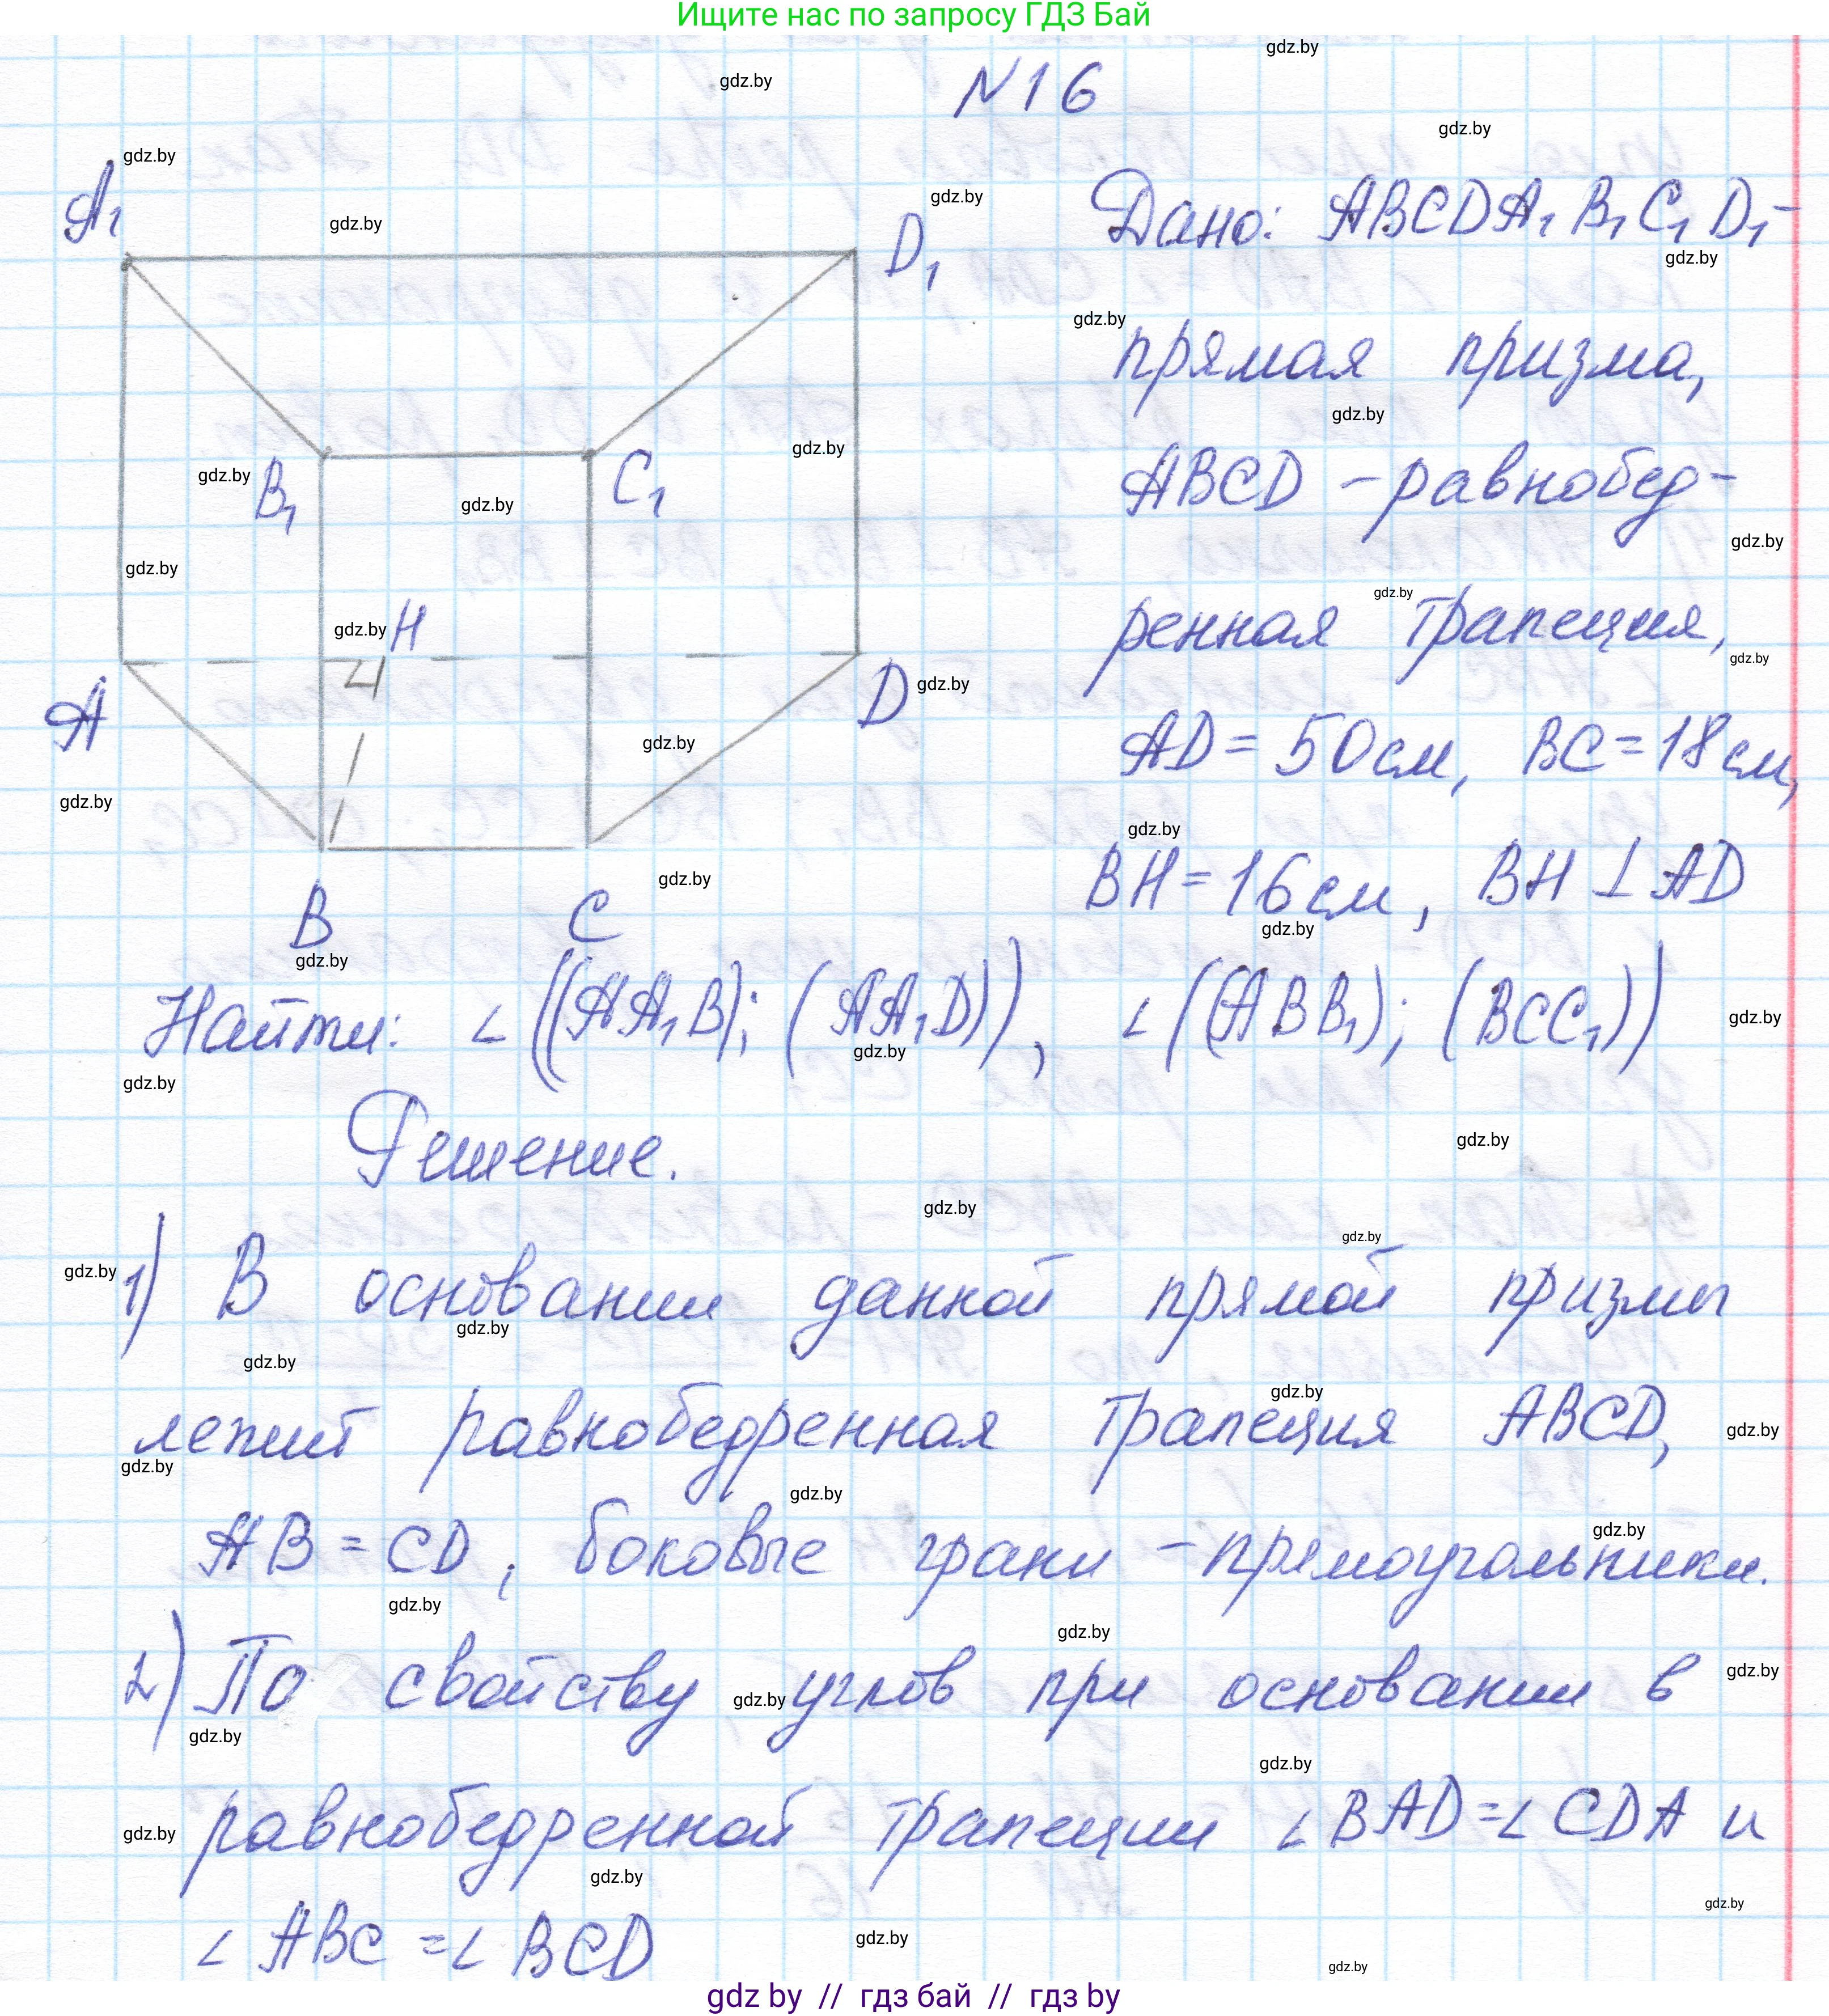 Ищите нас по запросу ГДЗ Бай
N16
Дано: ABCDA₁B₁C₁D₁-
прямая призма,
ABCD - равнобед-
ренная трапеция,
AD = 50см, BC = 18см,
BH = 16см, BH ⊥ AD
A₁
D₁
B₁
C₁
H
A
D
B
C
Найти: ∠((AA₁B); (AA₁D)), ∠((ABB₁); (BCC₁))
Решение.
1) В основании данной прямой призмы
лежит равнобедренная трапеция ABCD,
AB = CD, боковые грани - прямоугольники.
2) По свойству углов при основании в
равнобедренной трапеции ∠BAD = ∠CDA и
∠ABC = ∠BCD
gdz.by
gdz by // гдз бай // гдз by